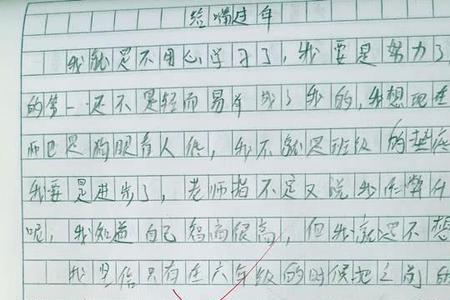 给懒过年
我就是不用心学习了，我要是努力了
的第一还不是轻而易举成了我的，我想现在
而已是狗眼看人低，我不就是班级的垫底
我要是进步了，老师指不定又说我作弊什
呢，我知道自己智商很高，但我就是不想
我坚信只有在六年级的时候把之前的